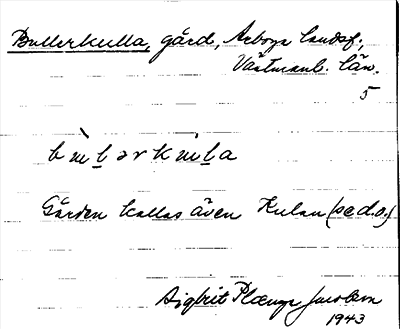 Bullerkulla, gård, Arboga landsf.,
Västmanl. län.
5
Gården kallas även Kulan (se d.o.)
Sigbrit Plænge Jacobson
1943